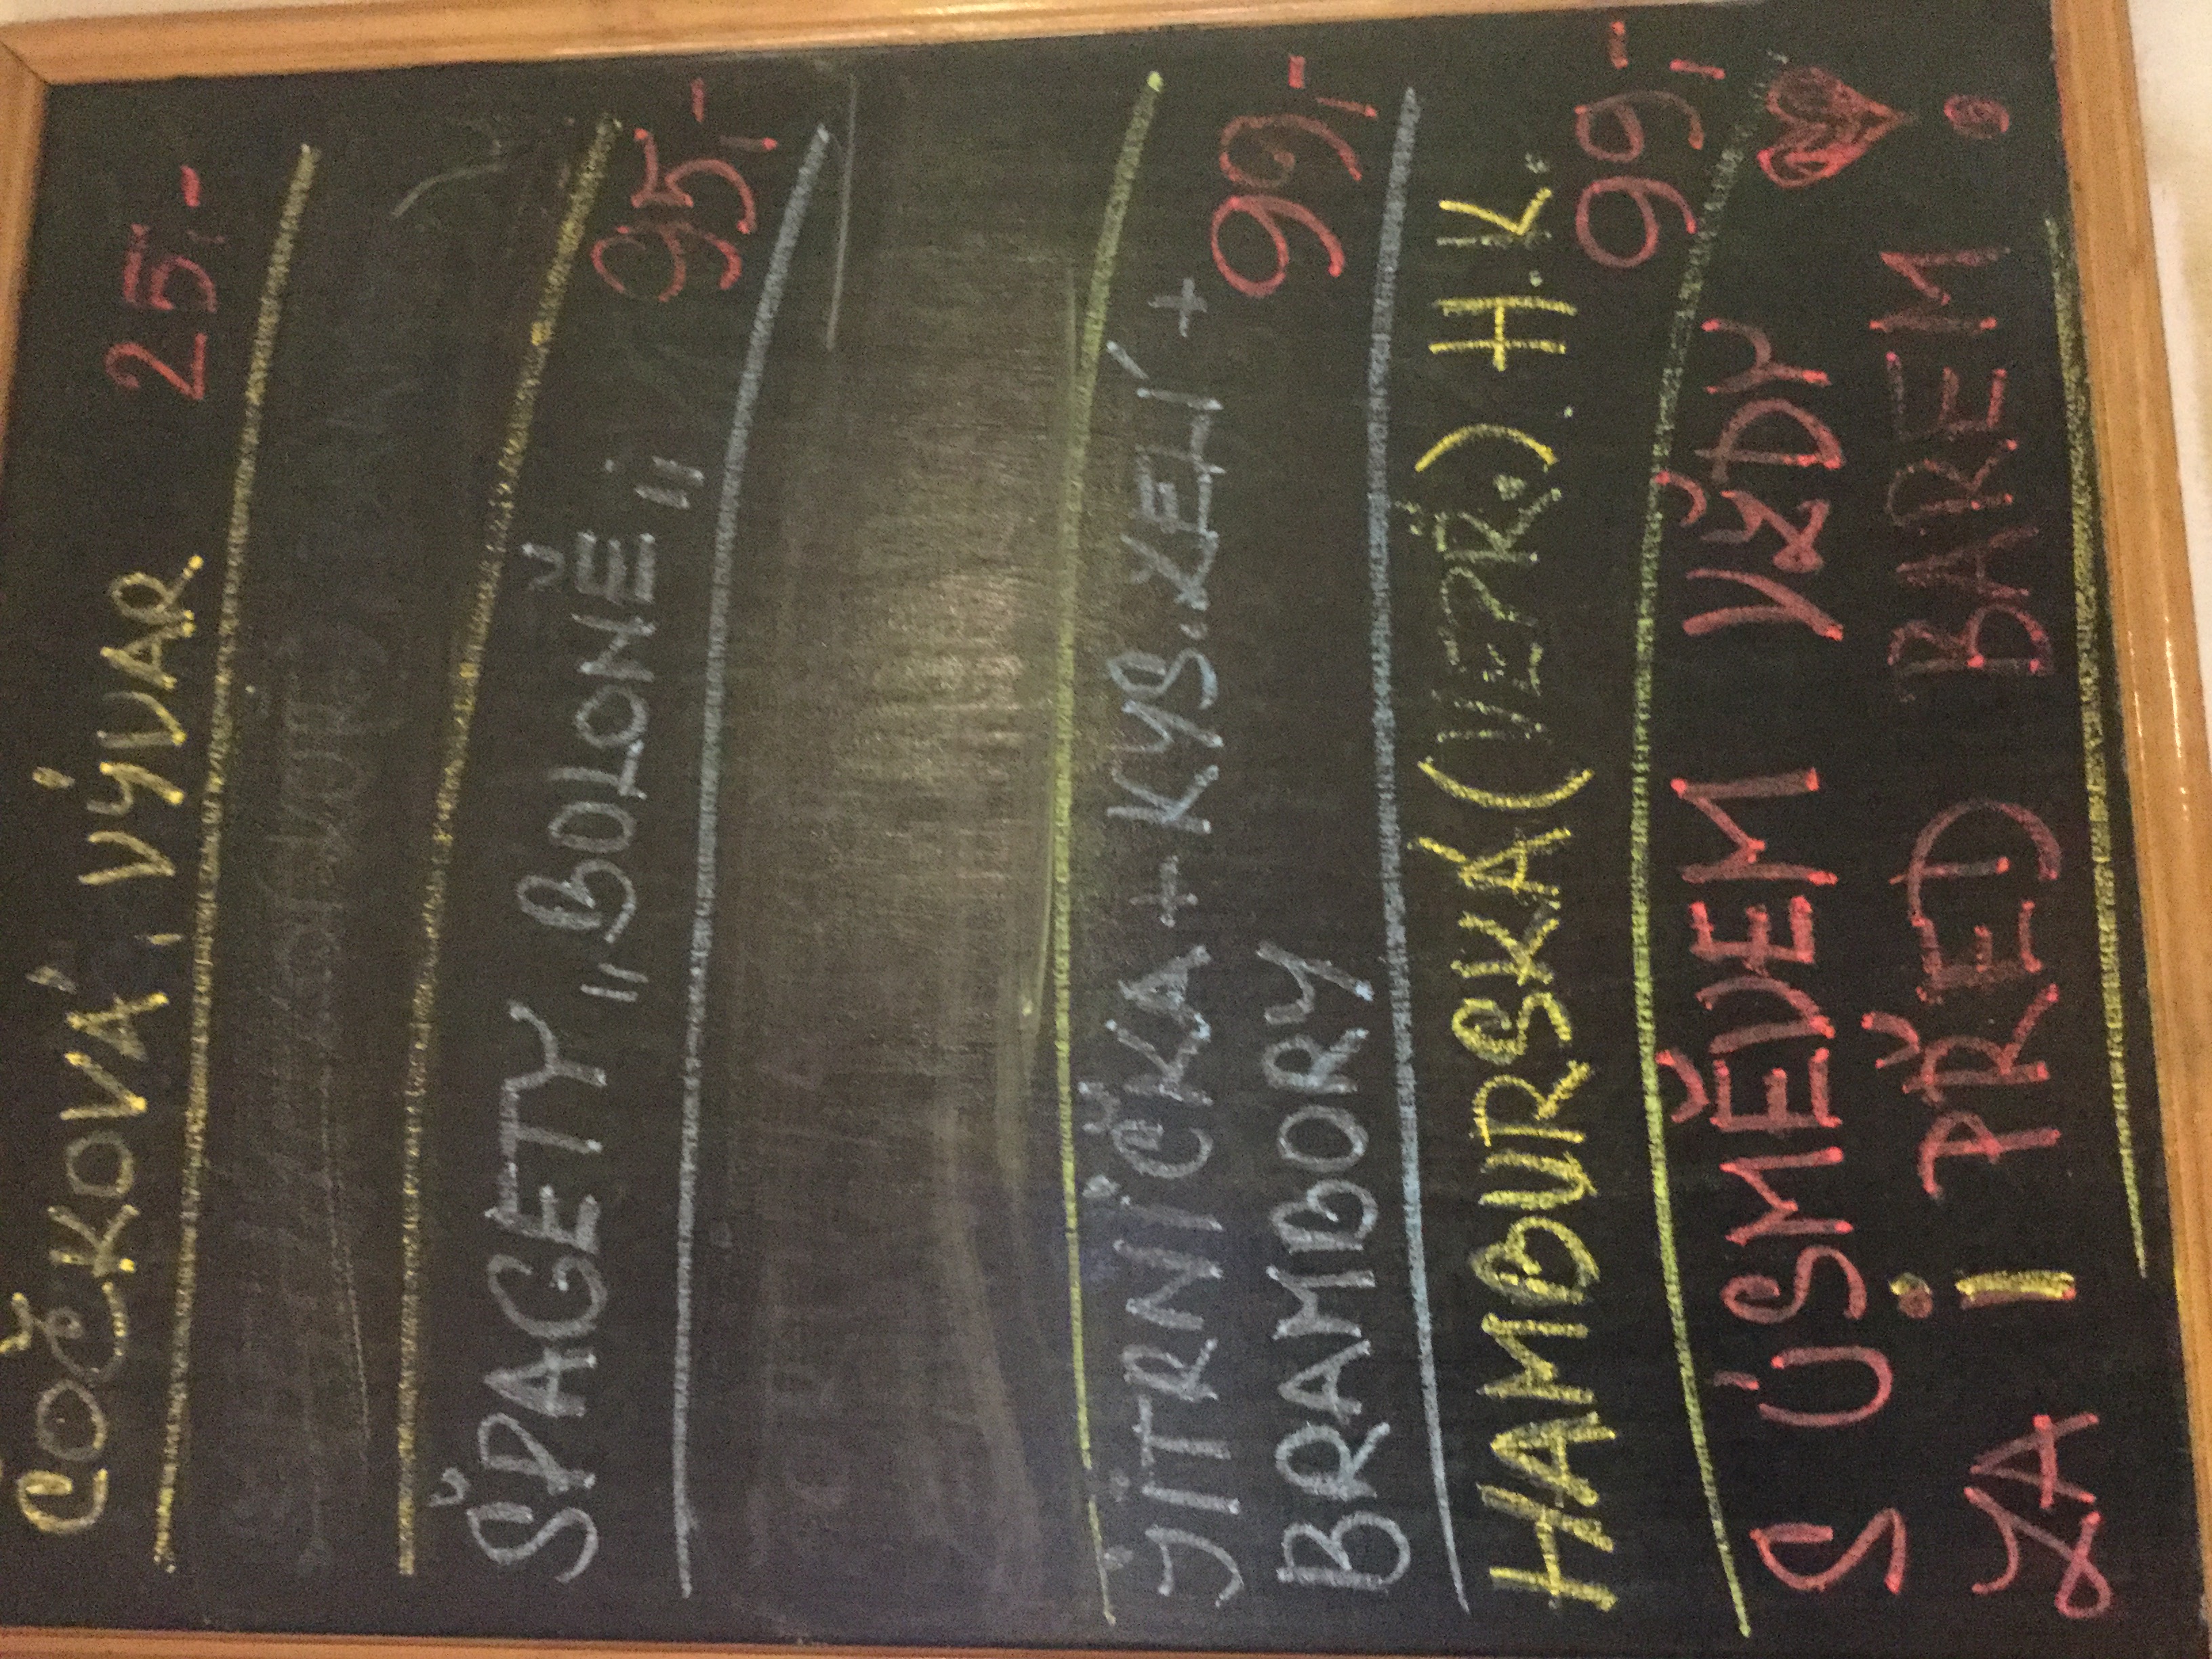 ČOČKOVÁ, VÝVAR 25,-
ŠPAGETY „BOLONĚ" 95,-
JITRNIČKA + KYS.ZELÍ +
BRAMBORY 99,-
HAMBURSKÁ (VEPŘ.). H.K. 99,-
S ÚSMĚVEM VŽDY ♥
ZA i PŘED BAREM.